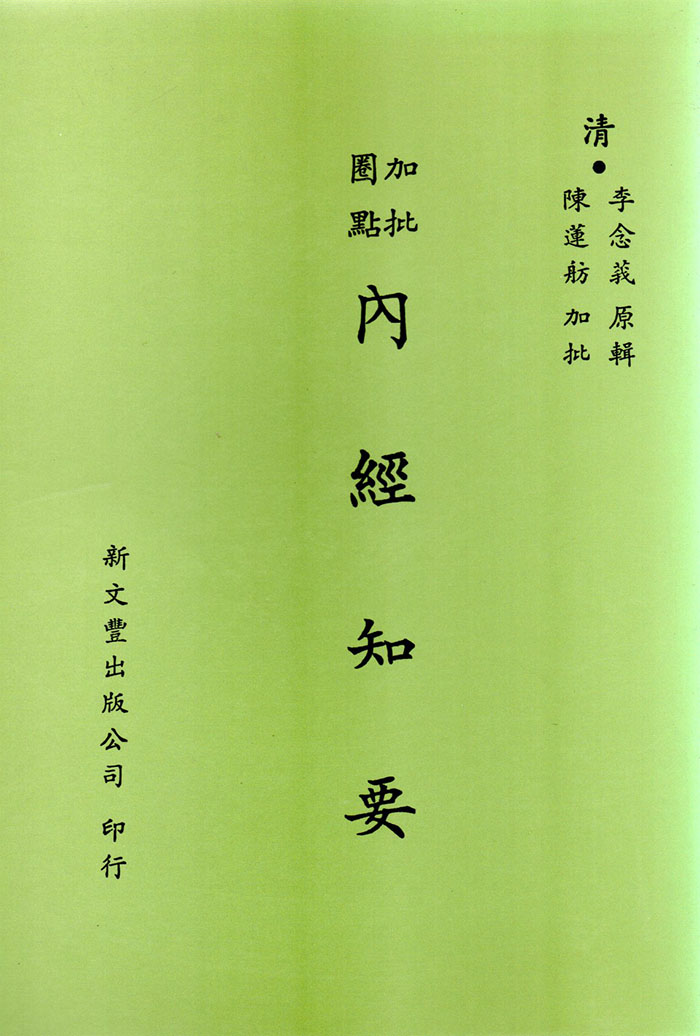 清●
李念莪 原輯
陳蓮舫 加批
加批
圈點
內經知要
新文豐出版公司 印行